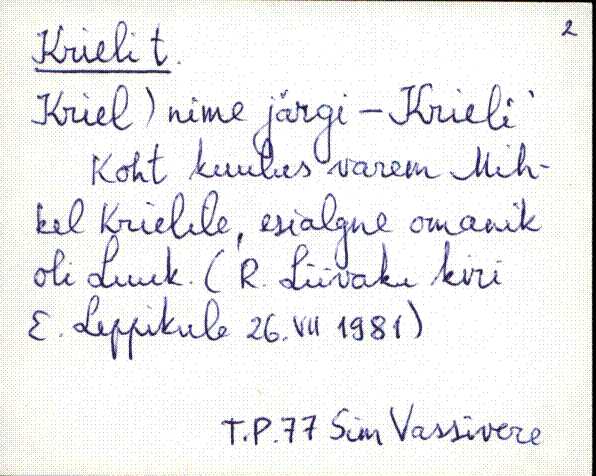 2
Krieli t.
Kriel) nime järgi – Krieli
Koht kuulus varem Mih-
kel Krielile, esialgne omanik
oli Luuk. (R. Liivaku kiri
E. Leppikule 26. VII 1981)
T.P.77 Sim Vassivere